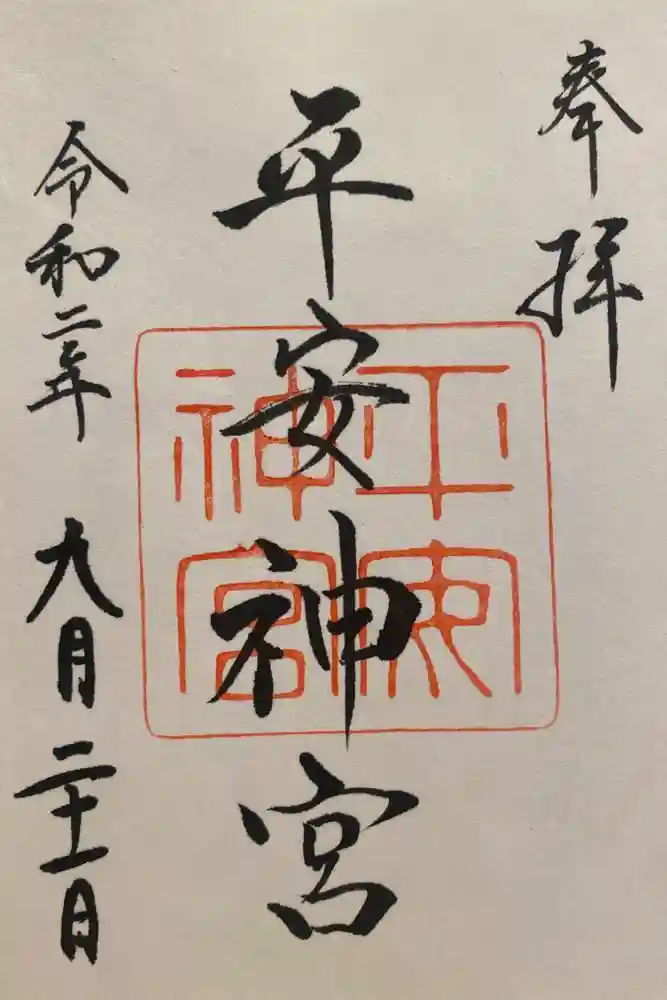 奉拝
平安神宮
平安神宮
令和二年 九月二十一日